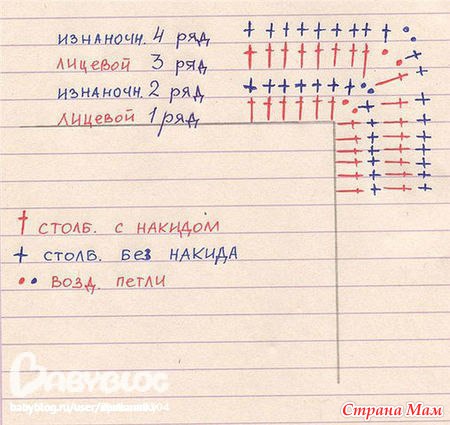 ИЗНАНОЧН. 4 РЯД
ЛИЦЕВОЙ 3 РЯД
ИЗНАНОЧН. 2 РЯД
ЛИЦЕВОЙ 1 РЯД
СТОЛБ. С НАКИДОМ
СТОЛБ. БЕЗ НАКИДА
ВОЗД. ПЕТЛИ
BABYBLOG
Страна Мам